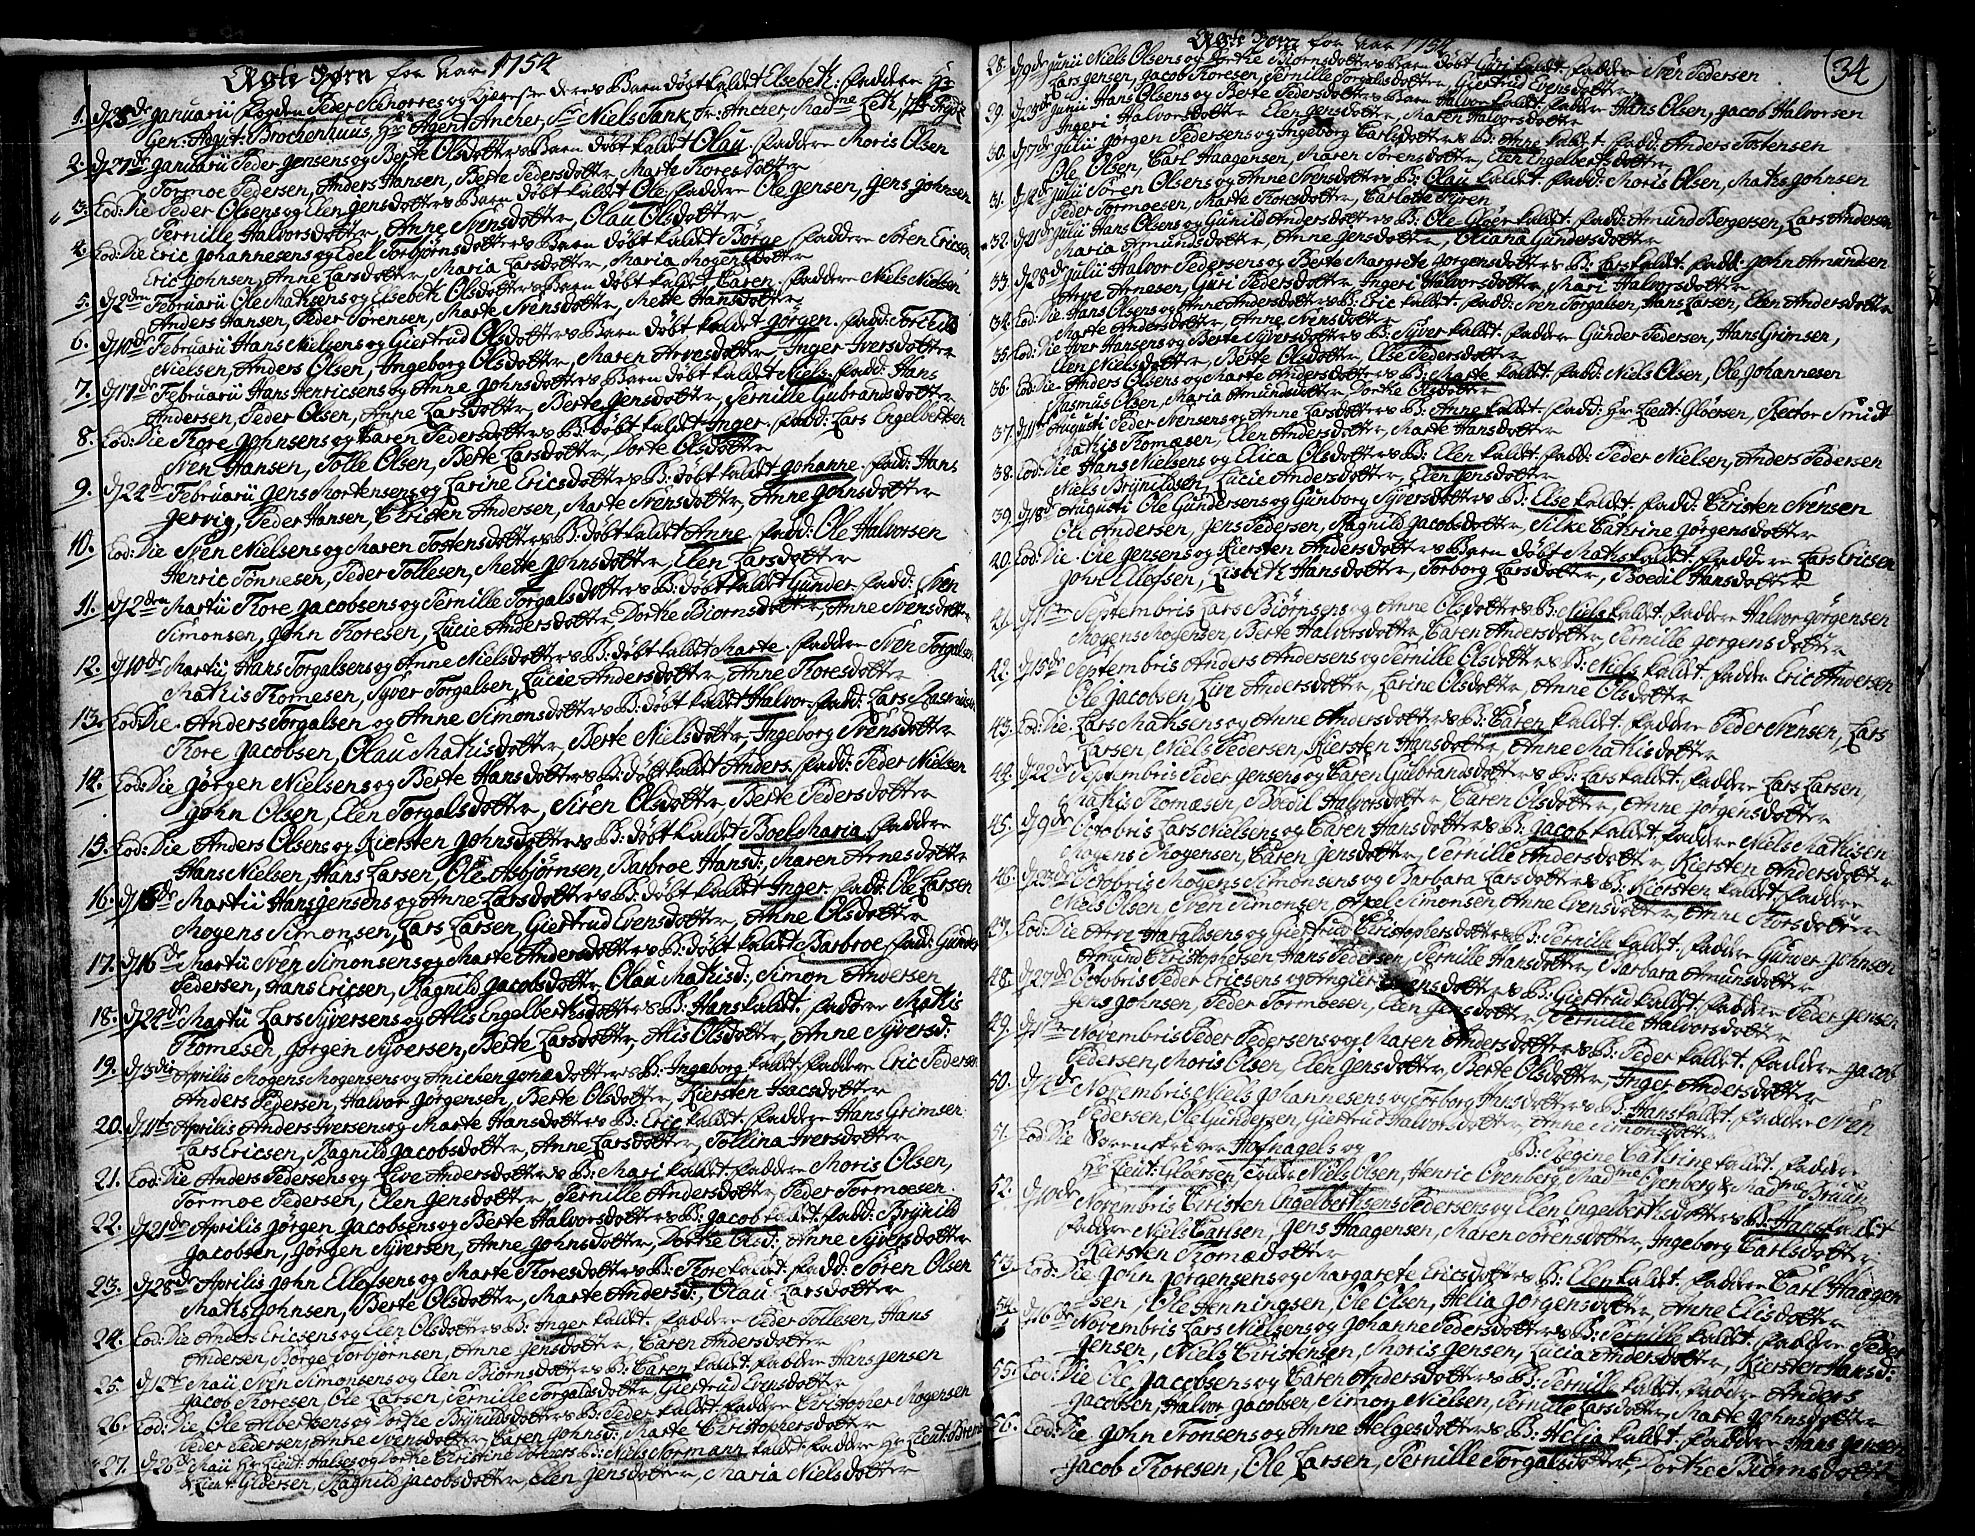 Ægte Børn for Aar 1754
1. d 23de Januarii Fogden Peder og Kjæreste deres Barn døbt kaldet Elsebeth. Faddere Hr
Gen: Brochenhuus, Hr Agent Ancher, Sr Niels Tank, Fr: Ancher, Madme Leth,
2. d 27de Januarii Peder Jensens og Berte Olsdotters Barn døbt kaldet Olau. Faddere Moris Olsen
Tormoe Pedersen, Anders Hansen, Berte Pedersdotter, Marte Thoresdotter
3. Eod: Die Peder Olsens og Elen Jensdotters Barn døbt kaldet Ole. Faddere Ole Jensen, Jens Johnsen
Pernille Halvorsdotter, Anne Svensdotter, Olau Olsdotter
4. Eod: Die Eric Johannesens og Edel Torbjørnsdotters Barn døbt kaldet Børge. Faddere Søren Ericsen
Eric Johnsen, Anne Larsdotter, Maria Larsdotter, Maria Mogensdotter
5. d 2den Februarii Ole Mathisens og Elsebeth Olsdotters Barn døbt kaldet Caren. Faddere Niels Nielsen
Anders Hansen, Peder Sørensen, Marte Svensdotter, Mette Hansdotter
6. d 10de Februarii Hans Nielsens og Giertrud Olsdotters Barn døbt kaldet Jørgen. Fadd:
Nielsen, Anders Olsen, Ingeborg Olsdotter, Maren Arvesdotter, Inger Iversdotter
7. d 17de Februarii Hans Henricsens og Anne Johnsdotters Barn døbt kaldet Niels. Fadd: Hans
Andersen, Peder Olsen, Anne Larsdotter, Berte Jensdotter, Pernille Gulbrandsdotter
8. Eod: Die Thore Johnsens og Caren Pedersdotters B: døbt kaldet Inger. Fadd: Lars Engelbertsen
Sven Hansen, Tolle Olsen, Berte Larsdotter, Dorte Olsdotter
9. d 24de Februarii Jens Mortensens og Karine Ericsdotters B: døbt kaldet Johanne. Fadd: Hans
Jervig, Peder Hansen, Christen Andersen, Marte Svensdotter, Anne Johnsdotter
10. Eod: Die Sven Nielsens og Maren Tostensdotters B: døbt kaldet Anne. Fadd: Ole Halvorsen
Henric Tønnesen, Peder Tollesen, Mette Johnsdotter, Elen Larsdotter
11. d 2den Martii Thore Jacobsens og Pernille Torgalsdotters B: døbt kaldet Gunder. Fadd: Sven
Simonsen, John Thoresen, Lucie Andersdotter, Dorthe Biørnsdotter, Anne Svensdotter
12. d 10de Martii Hans Torgalsens og Anne Nielsdotters B: døbt kaldet Marte. Faddere Sven Torgalsen
Mathis Thomesen, Syver Torgalsen, Lucie Andersdotter, Anne Thoresdotter
13. Eod: Die Anders Torgalsen og Anne Simonsdotters B: døbt kaldet Halvor. Fadd: Lars Rasmussen
Thore Jacobsen, Olau Mathisdotter, Berte Nielsdotter, Ingeborg Svensdotter
14. Eod: Die Jørgen Nielsens og Berte Hansdotters B: døbt kaldet Anders. Fadd: Peder Nielsen
John Olsen, Elen Torgalsdotter, Siren Olsdotter, Berte Pedersdotter
15. Eod: Die Anders Olsens og Kiersten Johnsdotters B: døbt kaldet Boel Maria. Faddere
Hans Nielsen, Hans Larsen, Ole Asbjørnsen, Barbroe Hansd:, Maren Arnesdotter
16. d 15de Martii Hans Jensens og Anne Larsdotters B: døbt kaldet Inger. Fadd: Ole Larsen
Mogens Simonsen, Lars Larsen, Giertrud Evensdotter, Anne Olsdotter
17. d 16de Martii Sven Simonsens og Marte Andersdotters B: døbt kaldet Barbroe. Fadd: Gunder
Pedersen, Hans Ericsen, Ragnild Jacobsdotter, Olau Mathisd:, Simon Andersen
18. d 24de Martii Lars Syversens og Alis Engelberthsdotters B: Hans kaldet. Faddere Mathis
Thomesen, Jørgen Syversen, Berte Larsdotter, Alis Olsdotter, Anne Syversd:
19. d 3die Aprilis Mogens Mogensens og Anichen Jonædotters B: Ingeborg kaldet. Faddere Eric Pedersen
Anders Pedersen, Halvor Jørgensen, Berte Olsdotter, Kiersten Isacsdotter
20. d 11te Aprilis Anders Iversens og Marte Hansdotters B: Eric kaldet. Faddere Hans Grimsen
Lars Ericsen, Ragnild Jacobsdotter, Anne Larsdotter, Tollina Iversdotter
21. Eod: Die Anders Pedersens og Live Andersdotters B: Mari kaldet. Faddere Moris Olsen,
Tormoe Pedersen, Elen Jensdotter, Pernille Andersdotter, Peder Tormoesen.
22. d 21de Aprilis Jørgen Jacobsens og Berte Halvorsdotters B: Jacob kaldet. Fadd: Brynild
Jacobsen, Jørgen Syversen, Anne Johnsdotter, Dorthe Olsd:, Anne Syversdotter
23. d 28de Aprilis John Ellefsens og Marte Thoresdotters B: Thore kaldet. Fadd: Søren Olsen
Mathis Johnsen, Berte Olsdotter, Marte Andersd:, Olau Larsdotter
24. Eod: Die Anders Ericsens og Elen Olsdotters B: Inger kaldet. Faddere Peder Tollesen, Hans
Andersen, Børge Torbjørnsen, Anne Jensdotter, Caren Andersdotter
25. d 12te Maii Sven Simonsens og Elen Biørnsdotters B: Caren kaldet. Faddere Hans Jensen
Jacob Thoresen, Ole Larsen, Pernille Torgalsdotter, Giertrud Evensdotter
26. Eod: Die Ole Albertsens og Dorthe Brynildsdotters B: Peder kaldet. Faddere Christopher Mogensen
Peder Pedersen, Anne Svensdotter, Caren Johnsd:, Marte Christophersdotter
27. d 26de Maii Hr Lieut: Halses og Dorthe Christine B: Niels Normann kaldet. Faddere Hr Lieut:
Lieut: Gløersen, Ragnild Jacobsdotter, Elen Jensdotter, Maria Nielsdotter
Ægte Børn for Aar 1754
34
28. d 9de Junii Niels Olsens og Dorthe Biørnsdotters Barn døbt Guri kaldet. Faddere Sven Pedersen
Lars Jensen, Jacob Thoresen, Pernille Torgalsdotter, Giertrud Evensdotter
29. d 23de Junii Hans Olsens og Berte Pedersdotters Barn Halvor kaldet. Faddere Hans Olsen, Jacob Halvorsen
Ingeri Halvorsdotter, Elen Jensdotter, Maren Halvorsdotter
30. d 7de Julii Jørgen Pedersens og Ingeborg Carlsdotters B: Anne kaldet. Fadd: Anders Tostensen
Ole Olsen, Carl Haagensen, Maren Sørensdotter, Elen Engelbertsdotter
31. d 14de Julii Søren Olsens og Anne Svensdotters B: Olau kaldet. Fadd: Moris Olsen, Mathis Johnsen
Peder Tormoesen, Marte Thoresdotter, Carlotte Syren
32. d 21de Julii Hans Olsens og Gunild Andersdotters B: Ole Gloer kaldet. Fadd: Amund Bergersen, Lars Andersen
Maria Amundsdotter, Anne Jensdotter, Eliana Gundersdotter
33. d 28de Julii Halvor Pedersens og Berte Margrete Jørgensdotters B: Lars kaldet. Fadd: John Amundsen
Arne Arnesen, Guri Pedersdotter, Ingeri Halvorsdotter, Mari Halvorsdotter
34. Eod: Die Hans Olsens og Anne Andersdotters B: Eric kaldet. Fadd: Sven Torgalsen, Hans Larsen, Elen Andersdotter
Marte Andersdotter, Anne Svensdotter
35. Eod: Die Iver Hansens og Berte Syversdotters B: Syver kaldet. Faddere Gunder Pedersen, Hans Grimsen,
Elen Nielsdotter, Berte Olsdotter, Else Pedersdotter
36. Eod: Die Anders Olsens og Marte Andersdotters B: Marte kaldet. Fadd: Niels Olsen, Ole Johannesen
Rasmus Olsen, Maria Amundsdotter, Dorthe Olsdotter
37. d 11te Augusti Peder Svensens og Anne Larsdotters B: Anne kaldet. Fadd: Hr Lieut: Gløersen, Rector Smidt
Mathis Thomæsen, Elen Andersdotter, Marte Hansdotter
38. Eod: Die Hans Nielsens og Elica Olsdotters B: Elen kaldet. Fadd: Peder Nielsen, Anders Pedersen
Niels Brynildsen, Lucie Andersdotter, Elen Jensdotter
39. d 18de Augusti Ole Gundersens og Gunborg Syversdotters B: Else kaldet. Fadd: Christen Svensen
Ole Andersen, Jens Pedersen, Ragnild Jacobsdotter, Silke Cathrine Jørgensdotter
40. Eod: Die Ole Jensens og Kiersten Andersdotters Barn døbt Mathis kaldet. Faddere Lars Ericsen
John Ellefsen, Lisbeth Hansdotter, Torborg Larsdotter, Boedil Hansdotter
41. d 1ste Septembris Lars Biørnsens og Anne Olsdotters B: Niels kaldet. Faddere Halvor Jørgensen
Mogens Mogensen, Berte Halvorsdotter, Caren Andersdotter, Pernille Jørgensdotter
42. d 15de Septembris Anders Andersens og Pernille Olsdotters B: Niels kaldet. Faddere Eric Andersen
Ole Jacobsen, Live Andersdotter, Karine Olsdotter, Anne Olsdotter
43. Eod: Die Lars Mathisens og Anne Andersdotters B: Caren kaldet. Faddere Peder Svensen, Lars
Larsen, Niels Pedersen, Kiersten Hansdotter, Anne Mathisdotter
44. d 22de Septembris Peder Jensens og Caren Gulbrandsdotters B: Lars kaldet. Faddere Lars Larsen,
Mathis Thomæsen, Boedil Halvorsdotter, Caren Olsdotter, Anne Jørgensdotter
45. d 9de Octobris Lars Nielsens og Caren Hansdotters B: Jacob kaldet. Faddere Niels Mathisen
Mogens Mogensen, Caren Jensdotter, Pernille Andersdotter, Kiersten Andersdotter
46. d 23de Octobris Mogens Simonsens og Barbara Larsdotters B: Kiersten kaldet. Faddere
Niels Olsen, Sven Simonsen, Axel Simonsen Anne Evensdotter, Anne Thorsdotter
47. Eod: Die Arve Haraldsens og Giertrud Christophersdotters B: Pernille kaldet. Faddere Gunder Johnsen
Amund Christophersen Hans Pedersen, Pernille Hansdotter, Barbara Amundsdotter
48. d 27de Octobris Peder Ericsens og B: Giertrud kaldet. Faddere Peder Jensen
Jens Johnsen, Peder Tormoesen, Elen Jensdotter, Pernille Halvorsdotter
49. d 1ste Novembris Peder Pedersens og Maren Andersdotters B: Peder kaldet. Faddere Jacob
Pedersen, Moris Olsen, Elen Jensdotter, Berte Olsdotter, Inger Andersdotter
50. Novembris Niels Johannesens og Torborg B: Hans kaldet. Faddere Sven
Pedersen, Ole Gundersen, Giertrud Halvorsdotter, Anne Simonsdotter
51. Eod: Die Sorenskriver Hofnagels og B: Regine Cathrine kaldet. Faddere
Hr Lieut: Gløersen, Niels Olsen, Henric Ovenberg, Madme Ovenberg & Madme Bruun
52. d 10de Novembris Christen Engelberthsens Pedersens og Elen Engelberthsdotters B: Hans kaldet
Faddere Niels Carlsen, Jens Haagensen, Maren Sørensdotter, Ingeborg Carlsdotter
Kiersten Thomædotter
53. Eod: Die John Jørgensens og Margarete Ericsdotters B: Elen kaldet. Faddere Carl Haagen
sen, Ole Henningsen, Ole Olsen, Helia Jørgensdotter, Anne Elisdotter
54. d 16de Novembris Lars Nielsens og Johanne Pedersdotters B: Pernille kaldet. Faddere Peder
Jensen, Niels Christensen, Moris Jensen, Lucia Andersdotter, Kiersten Hansd:
55. Eod: Die Ole Jacobsens og Caren Andersdotters B: Pernille kaldet. Faddere Anders
Jacobsen, Halvor Jacobsen, Simon Nielsen, Pernille Larsdotter, Marte Johnsdotter
56. Eod: Die John Tronsens og Anne Helgesdotters B: Helia kaldet. Faddere Hans Jensen
Jacob Thoresen, Ole Larsen, Pernille Torgalsdotter, Dorthe Biørnsdotter